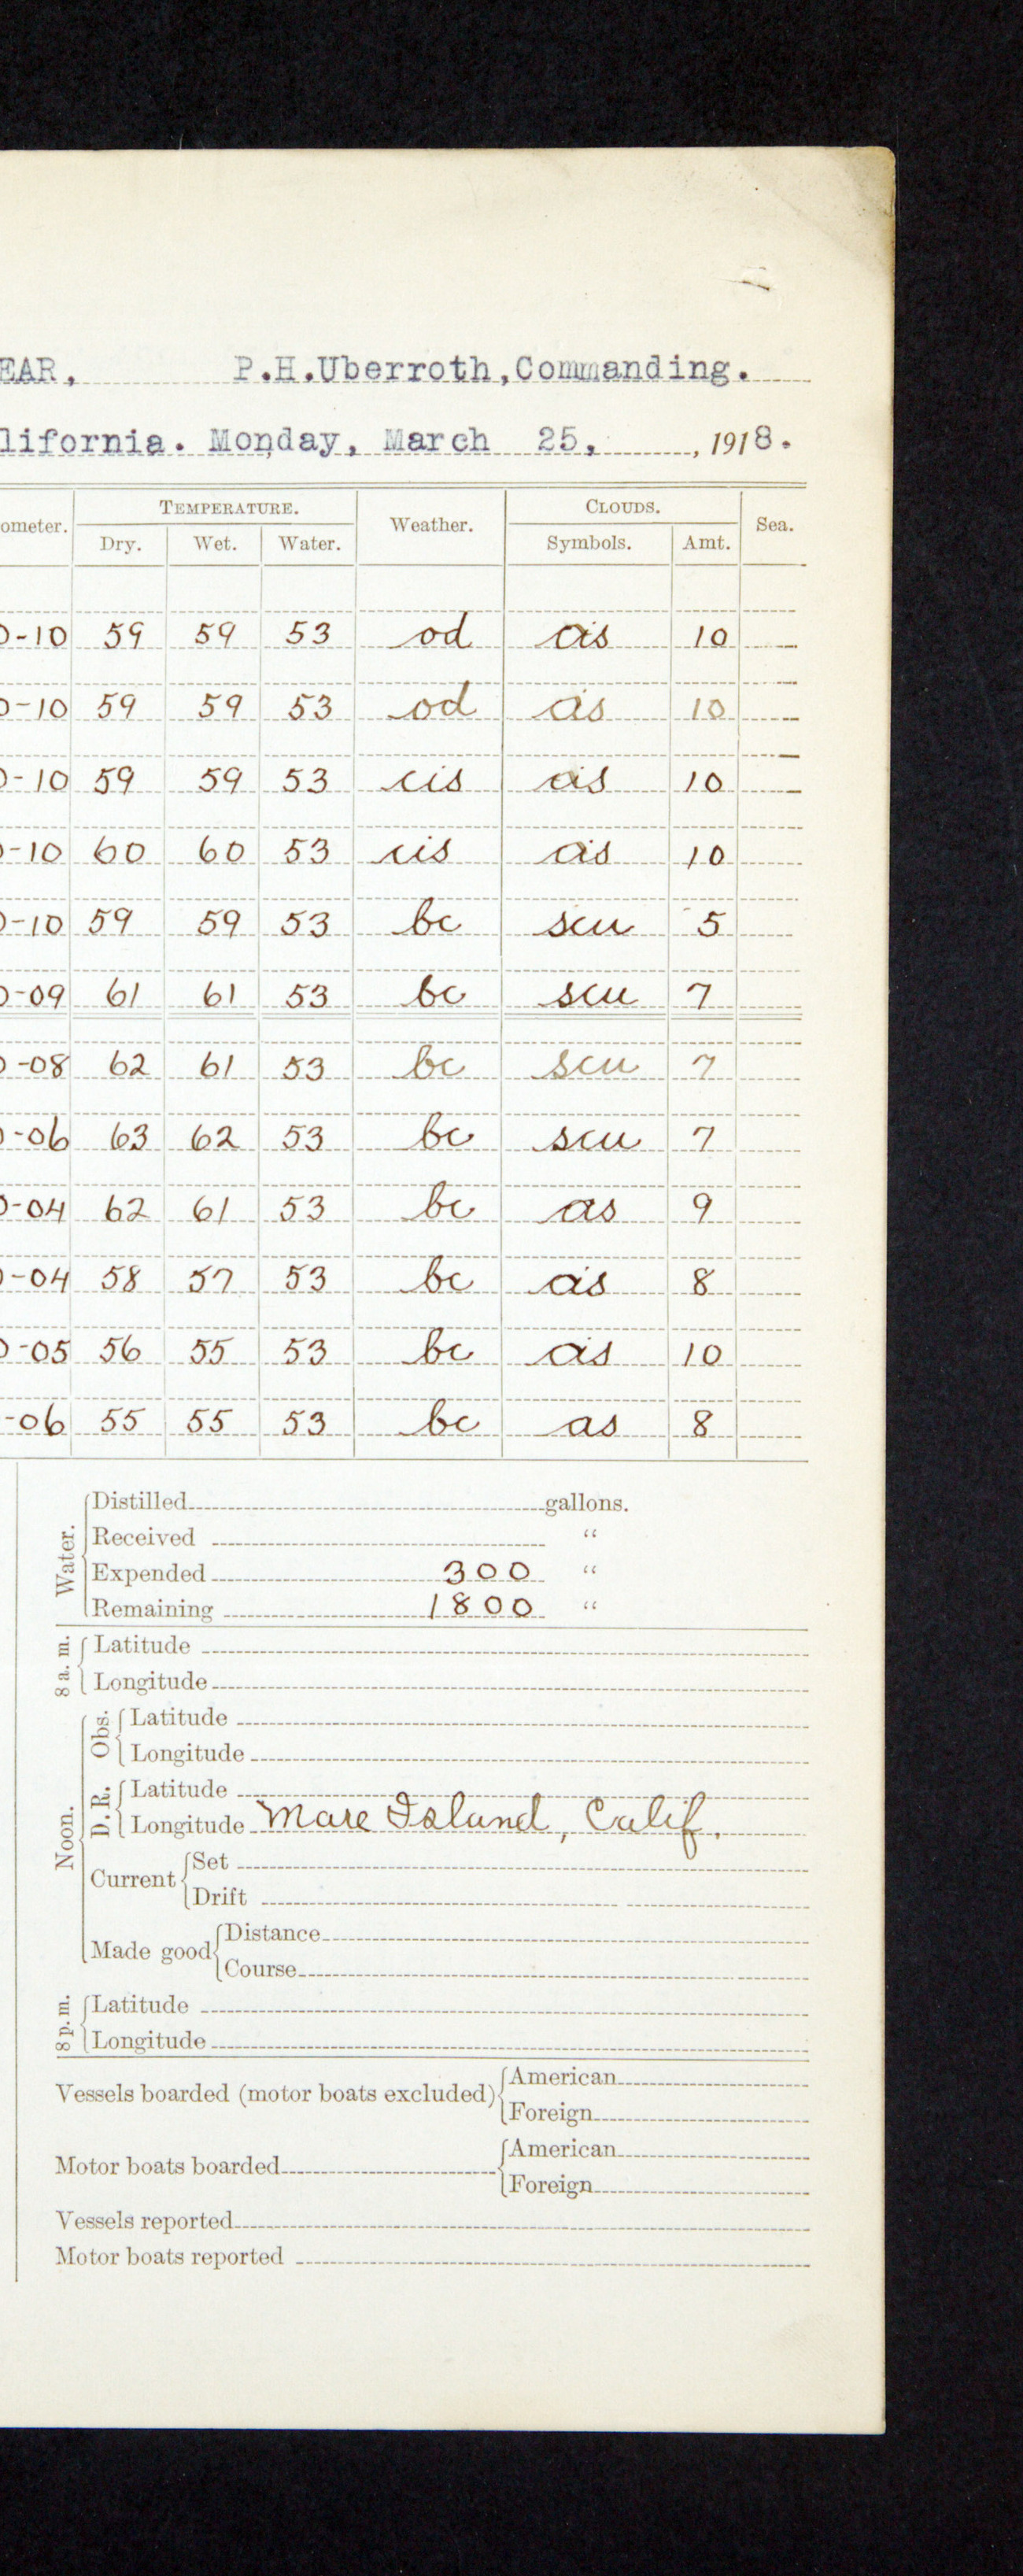 EAR, P.H.Uberroth,Commanding.
lifornia. Monday, March 25, , 1918.
ometer. TEMPERATURE. Weather. CLOUDS. Sea.
Dry. Wet. Water. Symbols. Amt.
0-10 59 59 53 od as 10
0-10 59 59 53 od as 10
0-10 59 59 53 cis as 10
0-10 60 60 53 cis as 10
0-10 59 59 53 bc scu 5
0-09 61 61 53 bc scu 7
0-08 62 61 53 bc scu 7
0-06 63 62 53 bc scu 7
0-04 62 61 53 bc as 9
0-04 58 57 53 bc as 8
0-05 56 55 53 bc as 10
-06 55 55 53 bc as 8
Water.
Distilled gallons.
Received "
Expended 300 "
Remaining 1800 "
8 a. m.
Latitude
Longitude
Noon.
Obs.
Latitude
Longitude
D. R.
Latitude
Longitude Mare Island, Calif.
Current
Set
Drift
Made good
Distance
Course
8 p. m.
Latitude
Longitude
Vessels boarded (motor boats excluded)
American
Foreign
Motor boats boarded
American
Foreign
Vessels reported
Motor boats reported